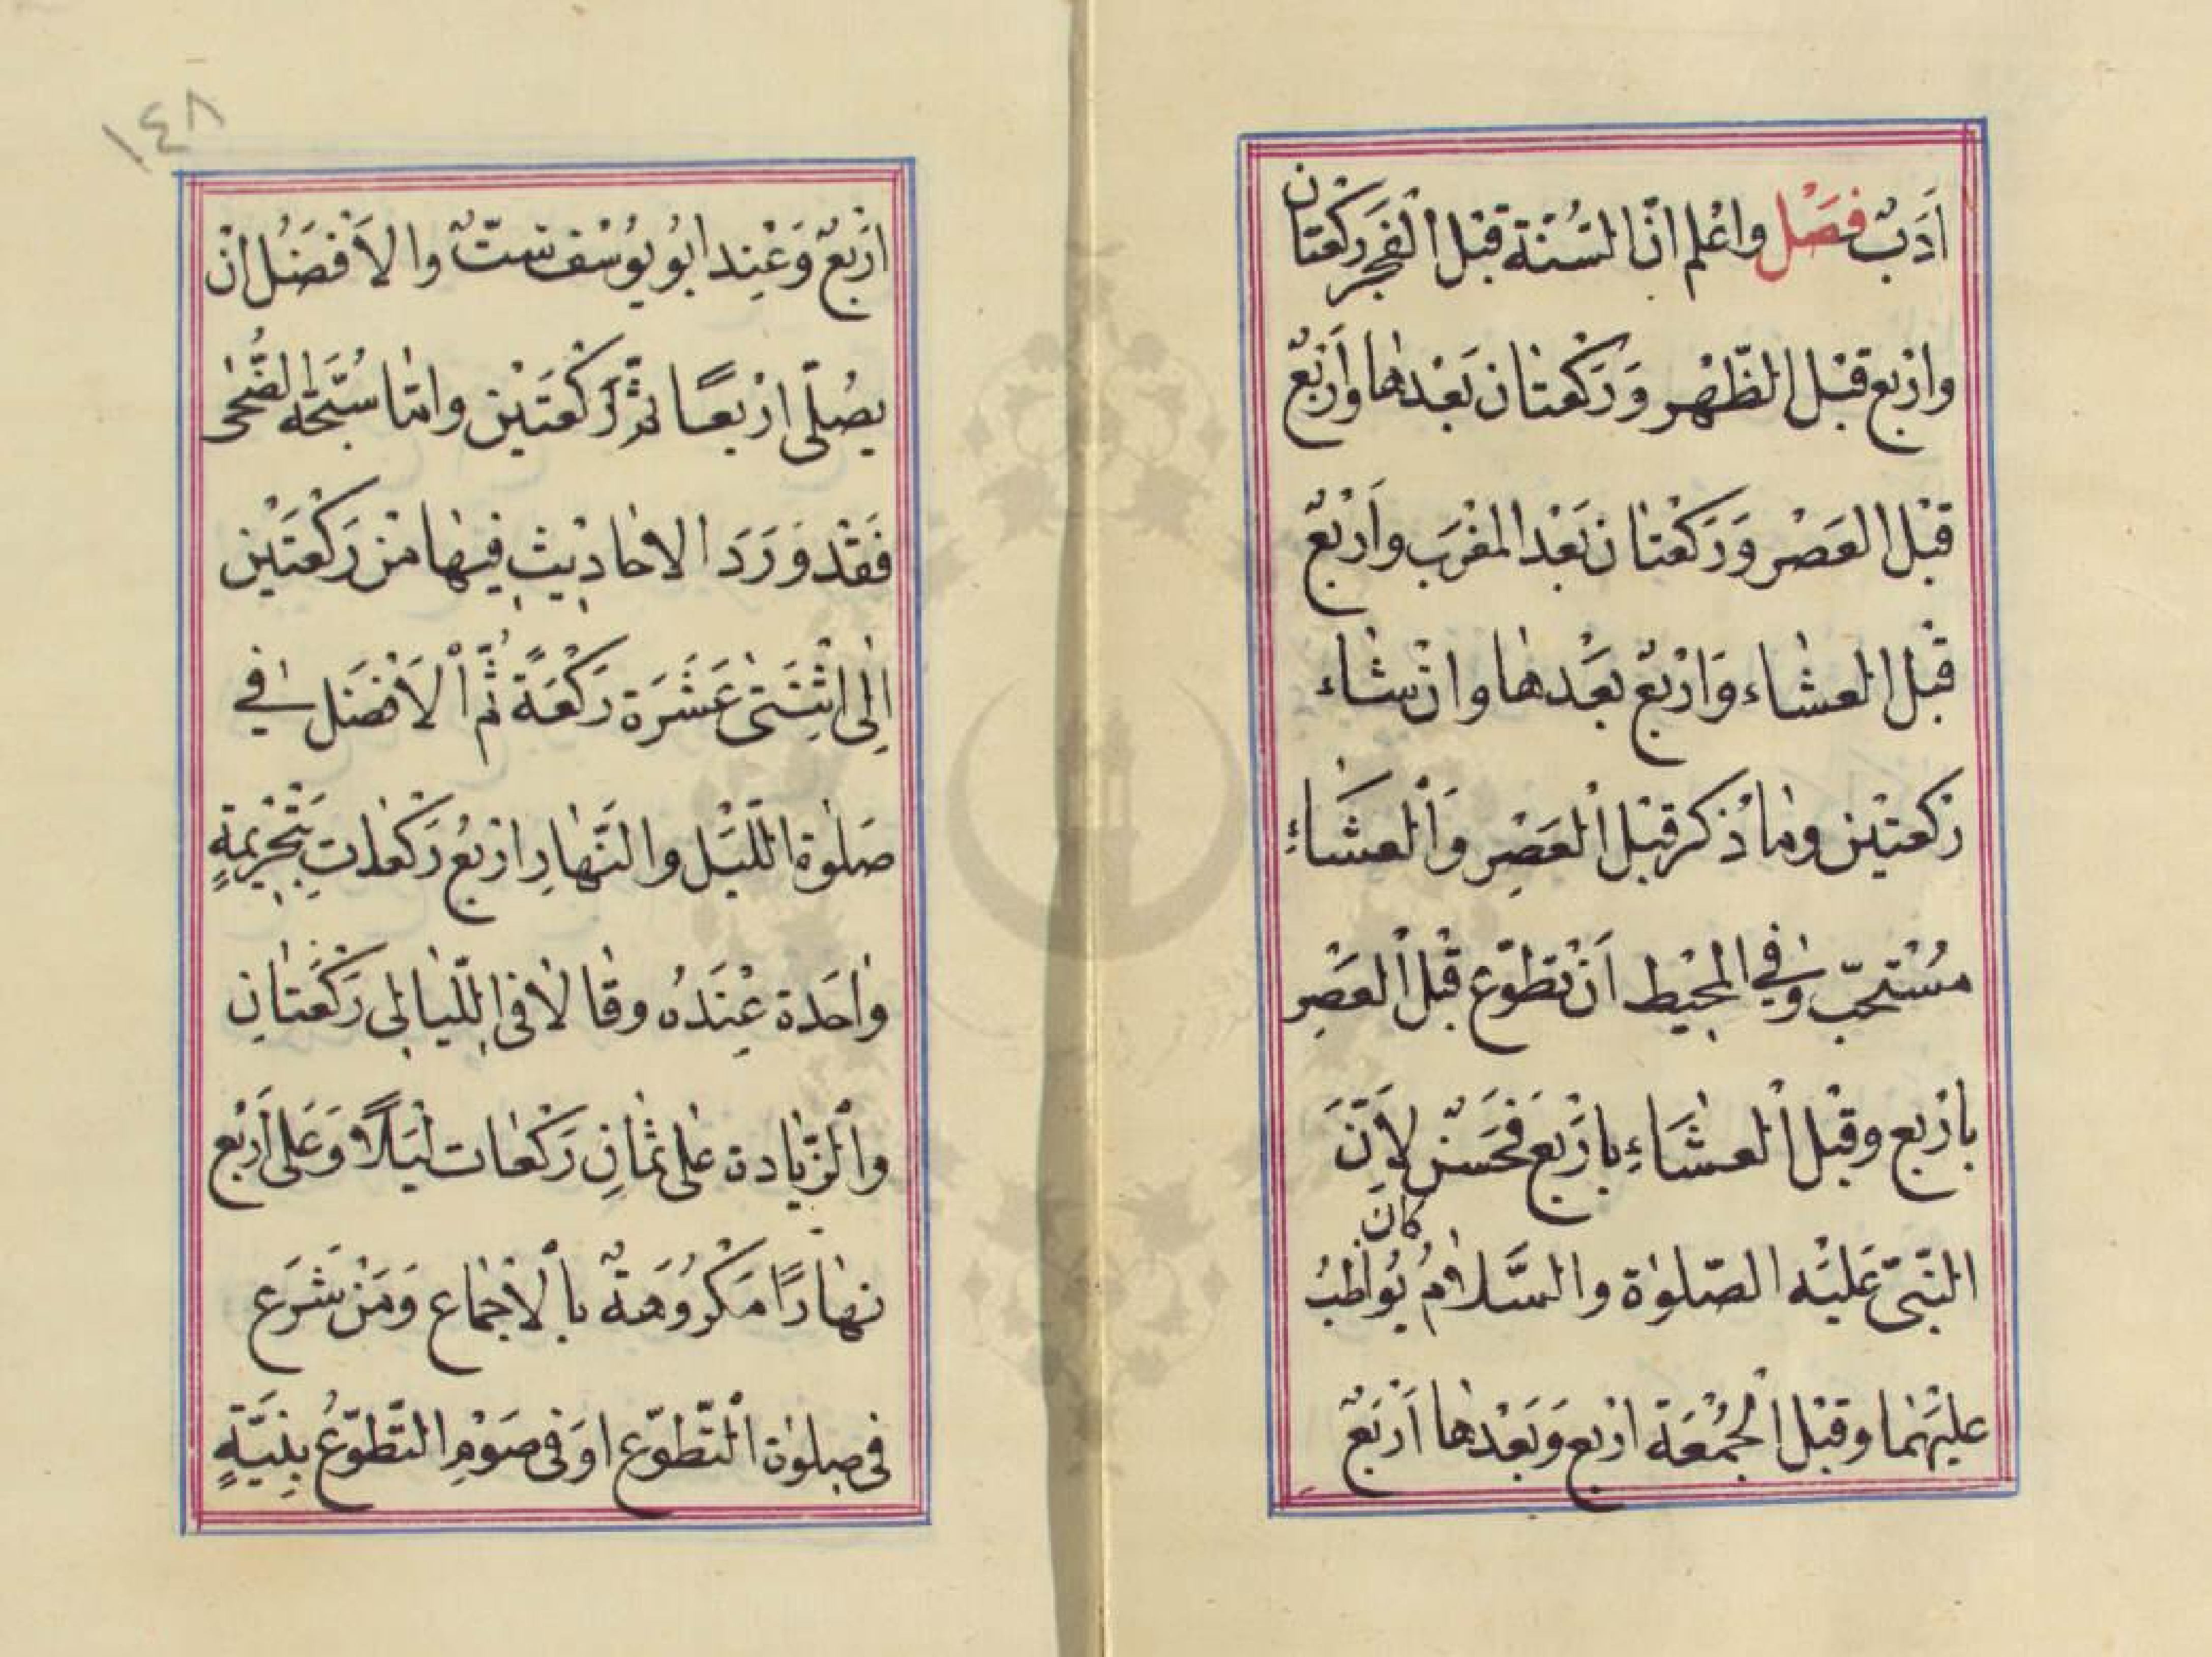 اَدَبٌ فصَل واعْلم انّ السُنّة قبْل الْفجَر ركْعتان
وارْبع قبْل الظّهْر وَرَكْعتان بَعْدها وَاَرْبعٌ
قبْل العَصْر وَرَكْعتان بَعْد المغْرَب واَرْبعٌ
قبْل العشاء وَارْبعٌ بعَْدها وانْ شاء
ركْعتيْن وما ذُكر قبْل الْعَصْرِ وَالْعشَاءِ
مسُتْحبّ وفي المحيْط اَنْ تطوّع قبْل الْعَصْرِ
بارْبع وقبْل الْعشَاءِ بارْبَع فحَسَنٌ لاَنّ
كانَ
النّبىّ عَليْه الصّلوٰة والسَّلامُ يُواظبُ
عليْهما وقبْل الْجُمْعَة ارْبع وَبَعْدها اَرْبَعٌ
١٤٨
ارْبعٌ وَعْنِد ابُو يوُسْف ستّ والاَفْضَلُ انْ
يصُلّى ارْبعًا ثمّ رَكْعَتَيْن وامّا سُبْحَة الضُّحٰى
فَقدْ وَرَدَ الاحٰاديْث فيهٰا منْ رَكْعَتَيْن
اِلٰى اثْنِتَىْ عَشَرَة رَكْعَةً ثُمّ الْاَفْضَل في
صَلٰوة اللّيْل والنَّهٰارِ ارْبعُ رَكْعٰاتٍ بتَحْرْيمةٍ
وٰاحَدة عِْنَدهُ وقٰالا فى اللّيٰالى رَكْعَتٰانِ
والْزّيٰادة علٰى ثمٰانِ رَكْعٰات ليْلًا وَعَلى اَرْبع
نهٰارًا مَكْرُوَهةٌ بالْاجْمٰاع وَمَنْ شَرَع
فى صلٰوة الْتّطوّع اوَ فى صَوْمِ التّطوّعُ بِنيَّةٍ